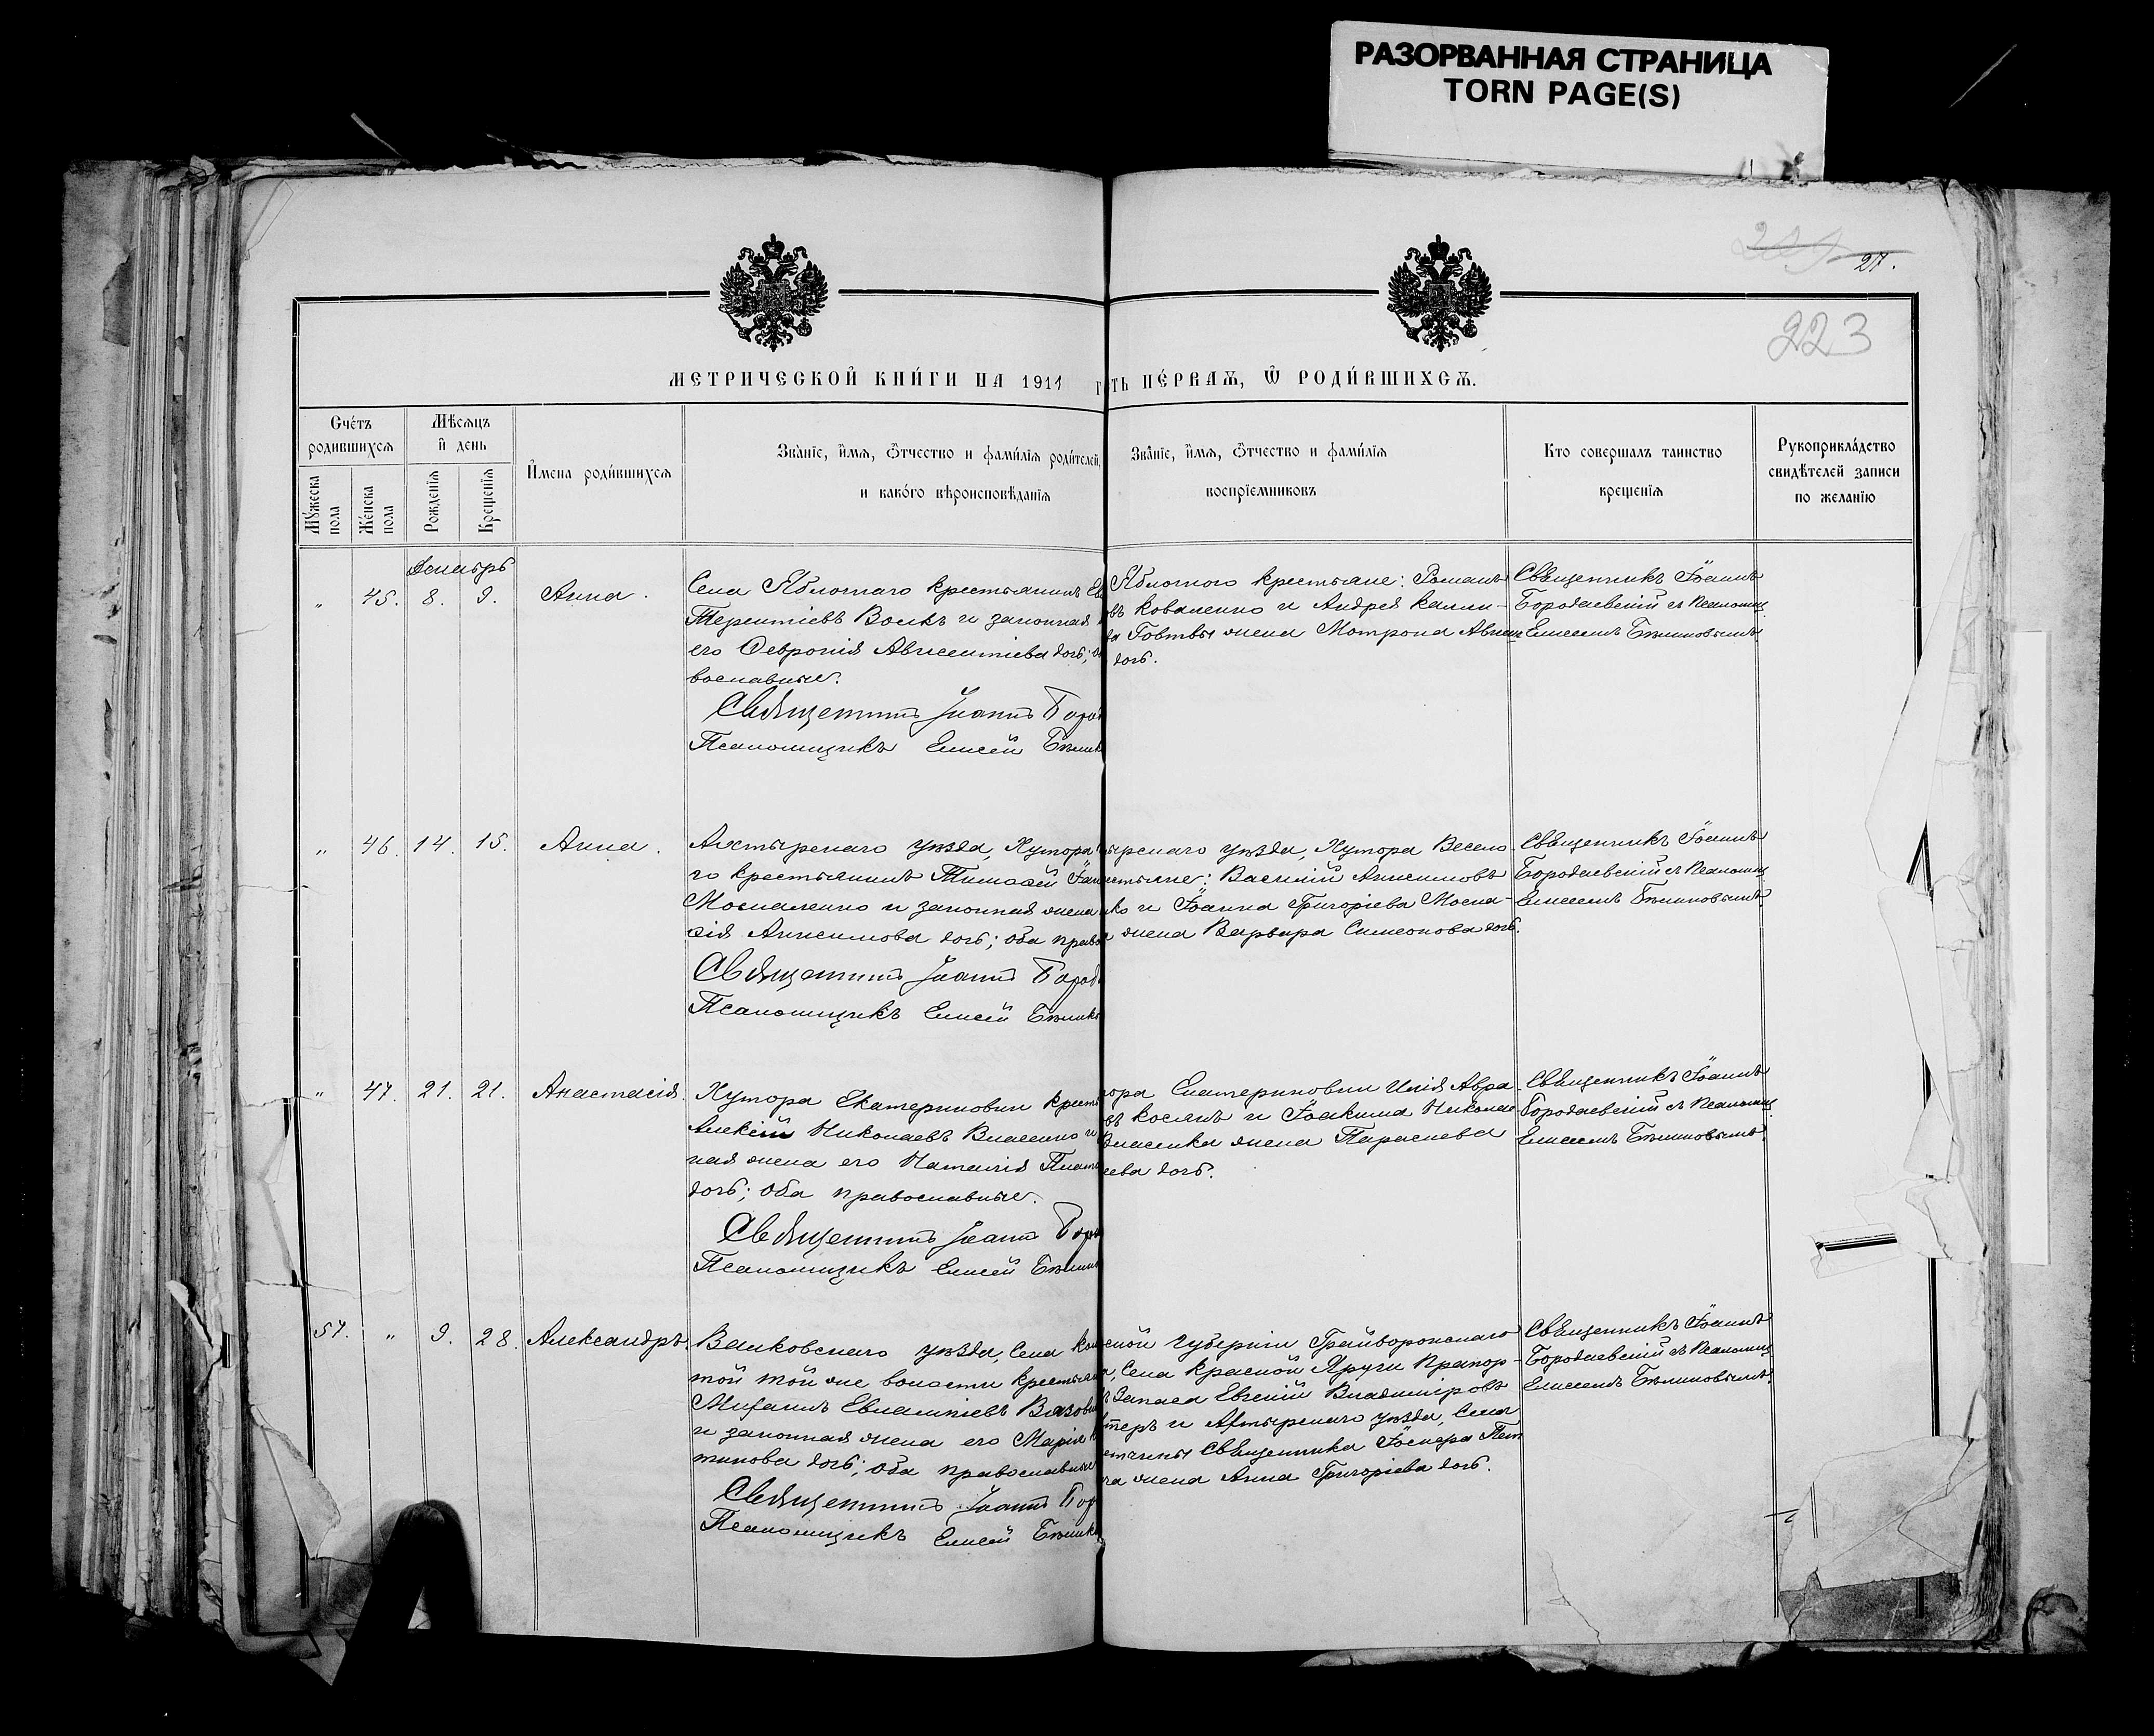 РАЗОРВАННАЯ СТРАНИЦА
TORN PAGE(S)
27.
223
МЕТРИЧЕСКОЙ КНИ́ГИ НА 1911
ПЕ́РВАѦ, Ѡ РОДИ́ВШИХСѦ.
Сче́тъ родившихсѧ
Мѣсѧцъ и день
Имена роди́вшихсѧ
Зва́нїе, имѧ, ѻтчество и фами́лїѧ роди́телей,
и како́го вѣроисповѣданїѧ
Зва́нїе, имѧ, ѻтчество и фами́лїѧ
воспрїемниковъ
Кто совершалъ таинство
крещенїѧ
Рукоприкла́дство
свидѣтелей записи
по желанїю
Мꙋжеска пола
Же́нска пола
Рожденїѧ
Крещенїѧ
Декабрь
" 45. 8. 9. Анна.
Села Яблочнаго крестьянинъ
Терентіевъ Волкъ и законная
его Февронія Авксентіева дочь;
вославные.
Священникъ Іоаннъ
Псаломщикъ Елисей
Яблочного крестьяне: Романъ
Коваленко и Андрея Калли-
Говтвы жена Матрона
дочь.
Священникъ Іоаннъ
Бородаевскій съ Псаломщ.
Елисеемъ Бѣликовымъ
" 46. 14. 15. Анна.
Ахтырскаго уѣзда, Хутора
го крестьянинъ Тимоѳей
Москаленко и законная жена
сія Анисимова дочь; оба
Священникъ Іоаннъ
Псаломщикъ Елисей
уѣзда, Хутора Весело-
Василій Анисимовъ
и Іоанна Григорьева Моска-
жена Варвара Симеонова дочь.
Священникъ Іоаннъ
Бородаевскій съ Псаломщ.
Елисеемъ Бѣликовымъ.
" 47. 21. 21. Анастасія.
Хутора Екатериновки
Алексій Николаевъ Власенко и
ная жена его Наталія
дочь; оба православные.
Священникъ Іоаннъ
Псаломщикъ Елисей
Екатериновки Илія Авра-
и Іоакима Николае-
Власенка жена Параскева
дочь.
Священникъ Іоаннъ
Бородаевскій съ Псаломщ.
Елисеемъ Бѣликовымъ.
57. " 9. 28. Александръ.
Валковскаго уѣзда, Села
той той же волости
Михаилъ Евлампіевъ
и законная жена его Марія
тинова дочь; оба православные
Священникъ Іоаннъ
Псаломщикъ Елисей
губерніи Грайворонскаго
Села Красной Яруги Прапор-
Запаса Евгеній Владиміровъ
и Ахтырскаго уѣзда, Села
Священника
жена Анна Григоріева дочь.
Священникъ Іоаннъ
Бородаевскій съ Псаломщ.
Елисеемъ Бѣликовымъ.